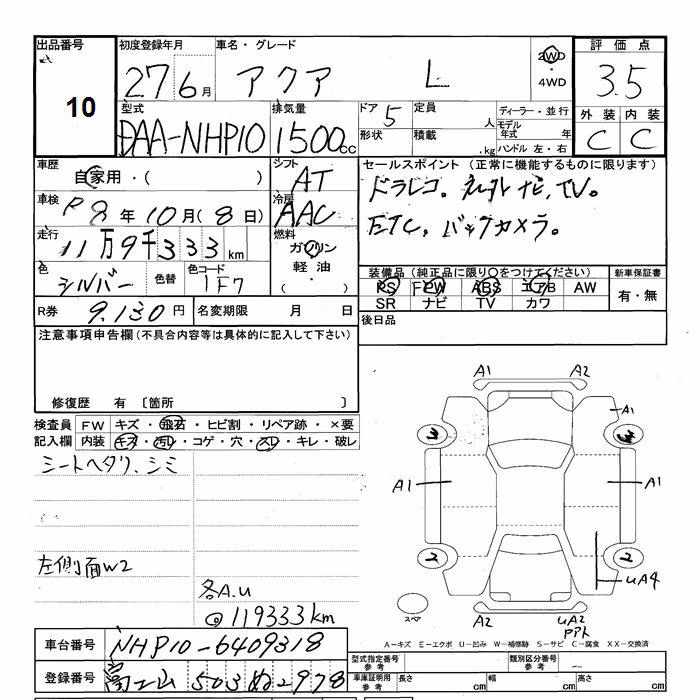 出品番号 初度登録年月 車名・グレード 評価点
10
27 6月 アクア L 2WD・4WD 3.5
型式 排気量 ドア 5 定員 人 ディーラー・並行 外装 内装
DAA-NHP10 1500cc 形状 積載 .kg モデル年式 年 C C
ハンドル 左・右
車歴 自家用・( ) シフト AT セールスポイント (正常に機能するものに限ります)
車検 R8年10月(8日) 冷房 AAC ドラレコ。ナビ、TV。
走行 11万9千333km 燃料 ガソリン 軽油・( ) ETC, バックカメラ。
色 シルバー 色替 色コード 1F7 装備品 (純正品に限り○をつけてください) 新車保証書
PS PW ABS エアB AW 有・無
SR ナビ TV カワ
R券 9,130円 名変期限 月 日 後日品
注意事項申告欄 (不具合内容等は具体的に記入して下さい)
修復歴 有 〔箇所 〕
検査員 FW キズ・飛石・ヒビ割・リペア跡・×要
記入欄 内装 キズ・汚レ・コゲ・穴・スレ・キレ・破レ
シートヘタリ、シミ
左側面W2
各A.U
@119333km
A1 A2
A1
3 3
A1 A1
2 2
UA4
スペア A2 UA2
PPK
A-キズ E-エクボ U-凹み W-補修跡 S-サビ C-腐食 XX-交換済
車台番号 NHP10-6409318 型式指定番号 参考 類別区分番号 参考
登録番号 富山 503 ぬ 2978 車庫証明用 参考 長さ cm 幅 cm 高さ cm